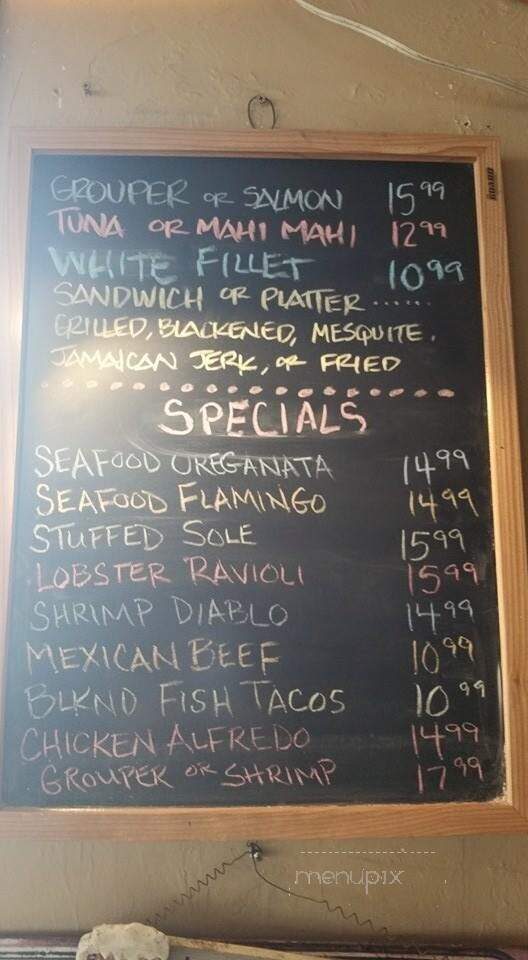 GROUPER OR SALMON 15.99
TUNA OR MAHI MAHI 12.99
WHITE FILLET 10.99
SANDWICH OR PLATTER ......
GRILLED, BLACKENED, MESQUITE.
JAMAICAN JERK, OR FRIED
SPECIALS
SEAFOOD OREGANATA 14.99
SEAFOOD FLAMINGO 14.99
STUFFED SOLE 15.99
LOBSTER RAVIOLI 15.99
SHRIMP DIABLO 14.99
MEXICAN BEEF 10.99
BLKND FISH TACOS 10.99
CHICKEN ALFREDO 14.99
GROUPER OR SHRIMP 17.99
menupix